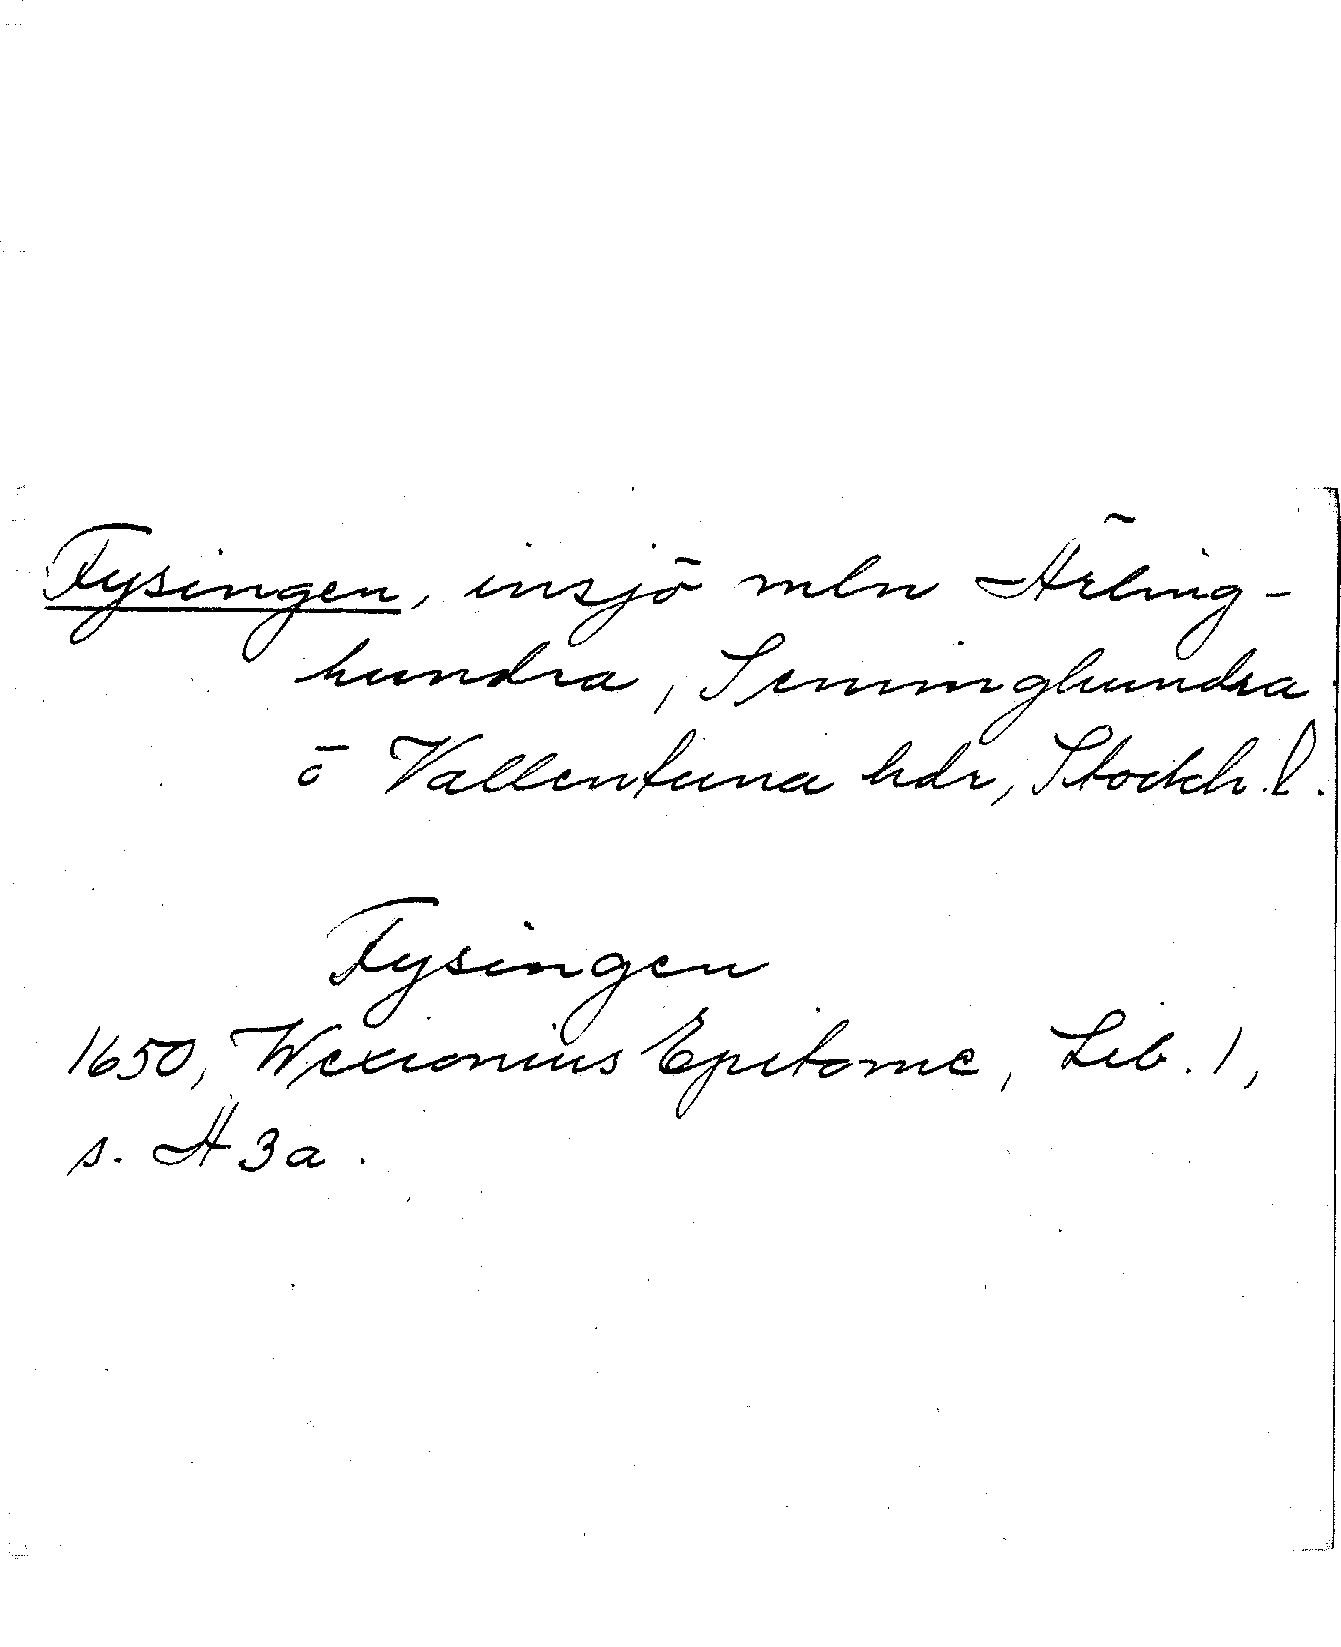 Fysingen, insjö mln Ärling-
hundra, Seminghundra
o Vallentuna hdr, Stockh. l.
Fysingen
1650, Wexionius Epitome, Lib. 1,
s. H 3 a.